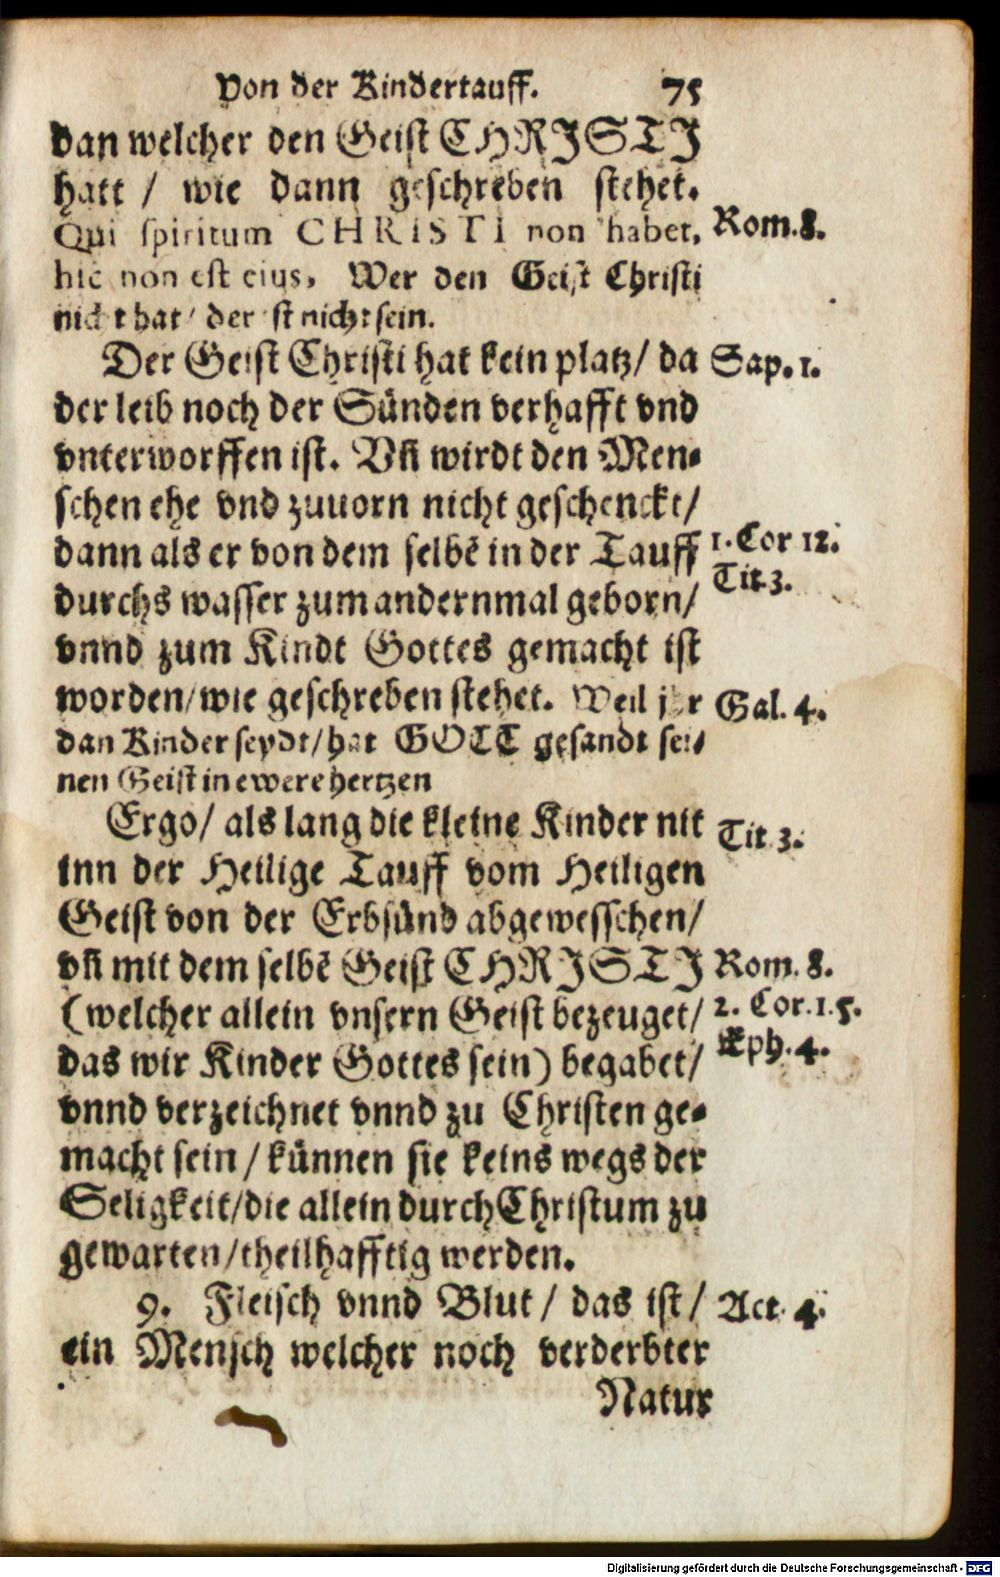 Von der Kindertauff. 75
dan welcher den Geist CHRISTI
hatt / wie dann geschreben stehet.
Qui spiritum CHRISTI non habet, Rom. 8.
hic non est eius, Wer den Geist Christi
nicht hat / der ist nicht sein.
Der Geist Christi hat kein platz / da Sap. 1.
der leib noch der Sünden verhafft vnd
vnterworffen ist. Vñ wirdt den Men-
schen ehe vnd zuuorn nicht geschenckt /
dann als er von dem selbẽ in der Tauff 1. Cor 12.
durchs wasser zum andernmal geborn / Tit. 3.
vnnd zum Kindt Gottes gemacht ist
worden / wie geschreben stehet. Weil jhr Gal. 4.
dan Kinder seydt / hat GOTT gesandt sei-
nen Geist in ewere hertzen
Ergo / als lang die kleine Kinder nit Tit. 3.
inn der Heilige Tauff vom Heiligen
Geist von der Erbsünd abgewesschen /
vñ mit dem selbẽ Geist CHRISTI Rom. 8.
(welcher allein vnsern Geist bezeuget / 2. Cor. 1. 5.
das wir Kinder Gottes sein) begabet / Eph. 4.
vnnd verzeichnet vnnd zu Christen ge-
macht sein / künnen sie keins wegs der
Seligkeit / die allein durch Christum zu
gewarten / theilhafftig werden.
9. Fleisch vnnd Blut / das ist / Act. 4.
ein Mensch welcher noch verderbter
Natur
Digitalisierung gefördert durch die Deutsche Forschungsgemeinschaft - DFG